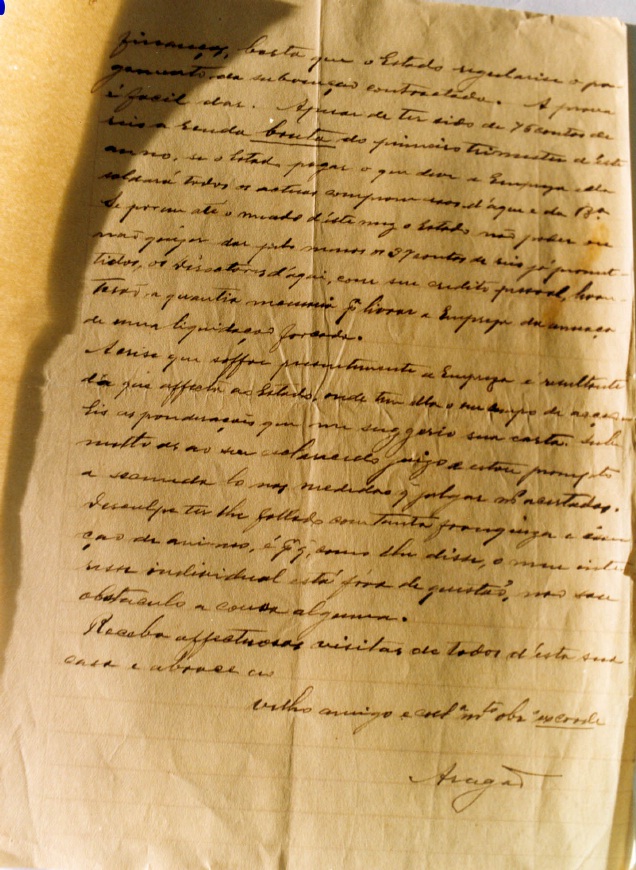 finanças, basta que o Estado regularise o pa-
gamento da subvenção contractada. A prova
é facil dar. Apezar de ter sido de 76 contos de
reis a renda bruta do primeiro trimestre d'este
anno, se o Estado pagar o que deve a Empreza ella
saldará todos os actuas compromissos d'aqui e da Bª
Se porem até o meado d'éste mez o Estado não poder ou
não quizer dar pelo menos os 37 contos de reis já promet-
tidos, os Directores d'aqui, com seu credito pessoal,
a quantia para livrar a Empreza da ameaça
de uma liquidação forçada.
A crise que soffre presentemente a Empreza é resultante
da que affecta ao Estado, onde tem ella o seu campo de acção.
Eis as ponderações que me suggerio sua carta. Sub-
metto as ao seu esclarecido juizo e estou prompto
a secunda lo nas medidas q julgar mˢ acertadas.
Desculpe ter lhe fallado com tanta franqueza e isen-
ção de animo, é pq, como lhe disse, o meu inte-
resse individual está fóra de questão, não sou
obstaculo a cousa alguma.
Receba affectuosas visitas de todos d'ésta sua
casa e abrace ao
velho amigo e colª mᵗᵒ obrº
Aragão